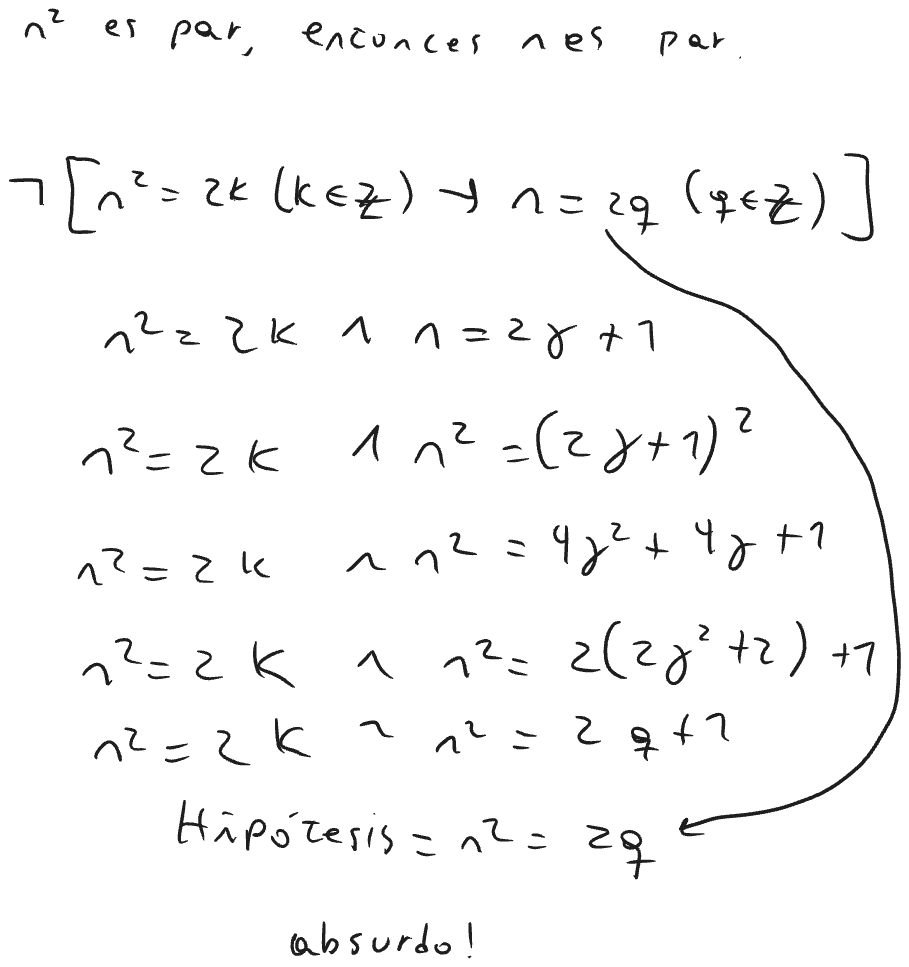 n² es par, entonces n es par.
¬[n² = 2k (k∈ℤ) → n = 2q (q∈ℤ)]
n² = 2k ∧ n = 2γ + 1
n² = 2k ∧ n² = (2γ+1)²
n² = 2k ∧ n² = 4γ² + 4γ + 1
n² = 2k ∧ n² = 2(2γ² + 2) + 1
n² = 2k ∧ n² = 2q + 1
Hipótesis = n² = 2q
absurdo!